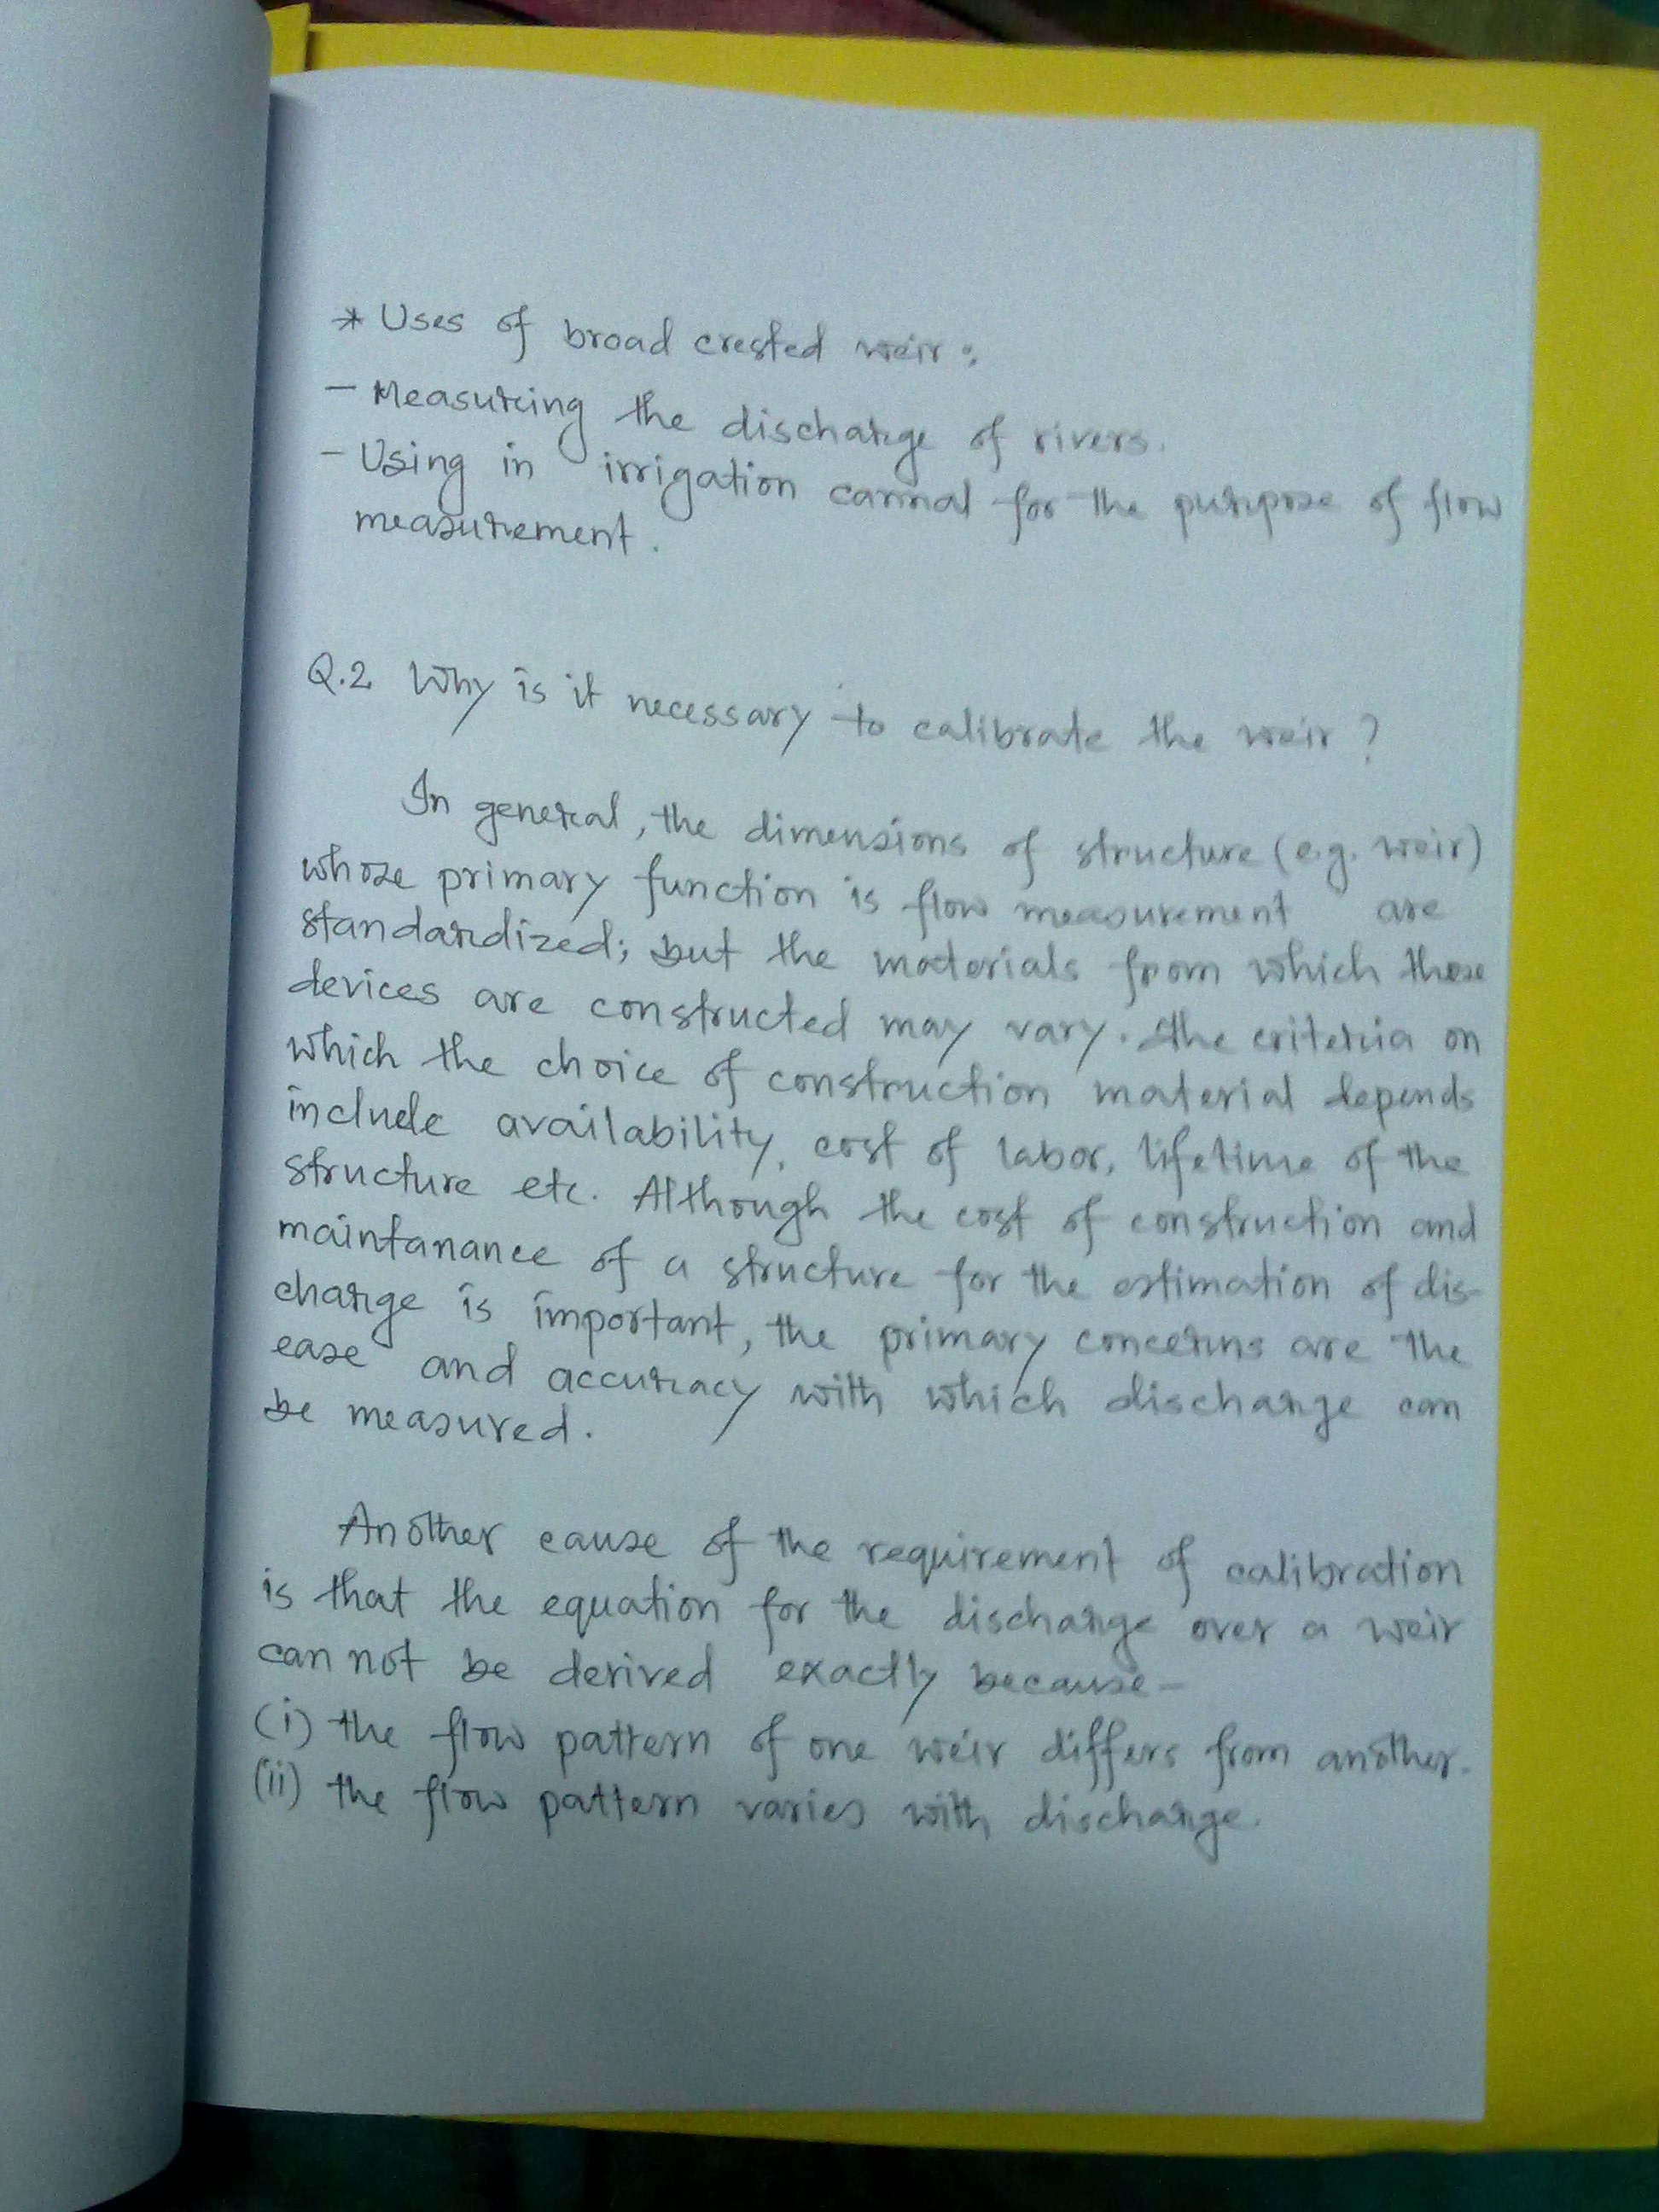 * Uses of broad crested weir :
- Measuring the discharge of rivers.
- Using in irrigation cannal for the purpose of flow
measurement.
Q.2 Why is it necessary to calibrate the weir ?
In general, the dimensions of structure (e.g. weir)
whose primary function is flow measurement are
standardized; but the materials from which these
devices are constructed may vary. The criteria on
which the choice of construction material depends
include availability, cost of labor, lifetime of the
structure etc. Although the cost of construction and
maintanance of a structure for the estimation of dis-
charge is important, the primary concerns are the
ease and accuracy with which discharge can
be measured.
Another cause of the requirement of calibration
is that the equation for the discharge over a weir
can not be derived exactly because-
(i) the flow pattern of one weir differs from another.
(ii) the flow pattern varies with discharge.